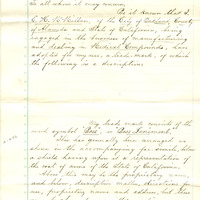 To all whom it may concern
Be it known that I,
of the City of Oakland, County
of Alameda and State of California, being
engaged in the business of manufacturing
and dealing in Medical Compounds, have
adopted for my use, a trade mark, of
which the following is a description
My trade mark consists of the
word symbol
This has generally been arranged as
shown in the accompanying fac simile, above
a shield having upon it a representation
of the coat of arms of the State of California.
Above this may be the proprietary name,
and below, descriptive matter, directions for
use, proprietary name and address, but